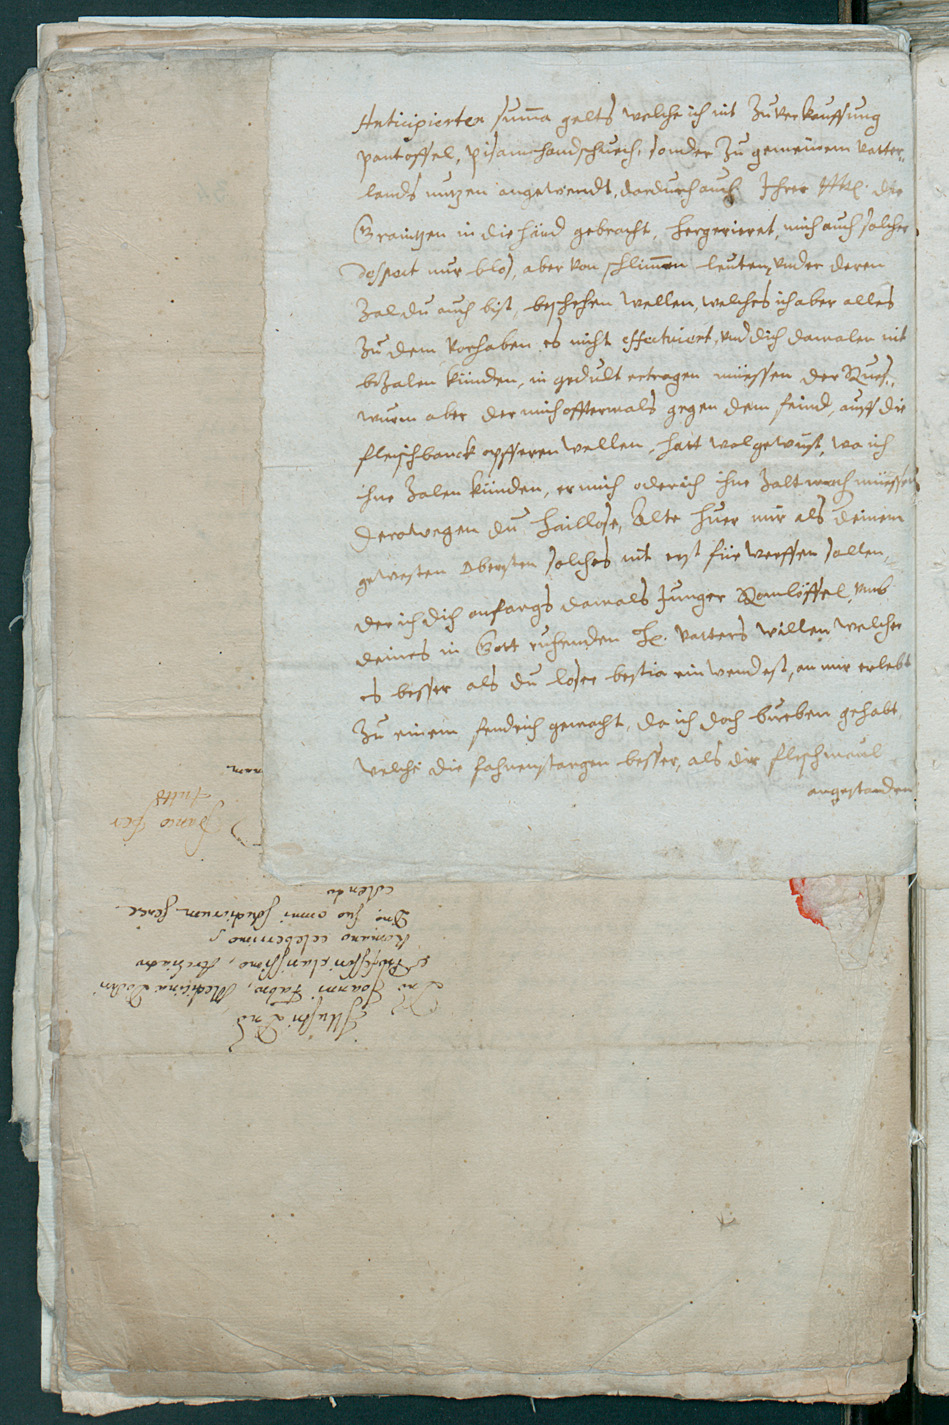 Anticipierten sum̅a gelts welche ich nit zu verkauffung
pantoffel, pisamhandschuech, sonder zu gemeinem vatter„
lands nutzen angewendt, dardurch auch Ihrer die
Granitzen in die händ gebracht, hergerieret, mich auch solcher
despect nur blos, aber von schlim̅en leuten, vnder deren
Zal du auch bist, beschehen wellen, welches ich aber alles
zu dem vorhaben es nicht effectuiert, vnd dich damalen nit
bezalen künden, in gedult ertragen müessen der
wurm aber der mich offtermals gegen dem feind, auff die
fleischbanck opfferen wellen, hatt wol gewust, wa ich
ihne zalen künden, er mich oder ich ihne müessen
Derowegen du haillose, alte huer mir als deinem
gewesten Obersten solches nit erst für werffen sollen,
der ich dich anfangs damals Junger Romlöffel, vmb
deines in Gott ruhenden H. vatters willen welcher
es besser als du lose bestia ein wendest, an mir erlebt
zu einem fendrich gemacht, da ich doch bueben gehabt,
welche die fahnenstangen besser, als dir flechmaul
angestanden
Illustri Dno
Dno Joanni Fabro, Medicinae Doctori
& Professori clarissimo, Archiatro
Romano celeberrimo,
Dno suo omni studiorum genere
colendo